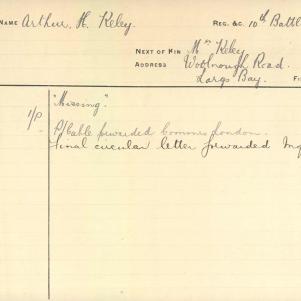 NAME Arthur H. Keley. REG. &C. 10th Battl
NEXT OF KIN Mrs Keley
ADDRESS Woolnough Road.
Largs Bay.
"Missing".
1/P P/Cable forwarded Commrs London.
Final circular letter forwarded